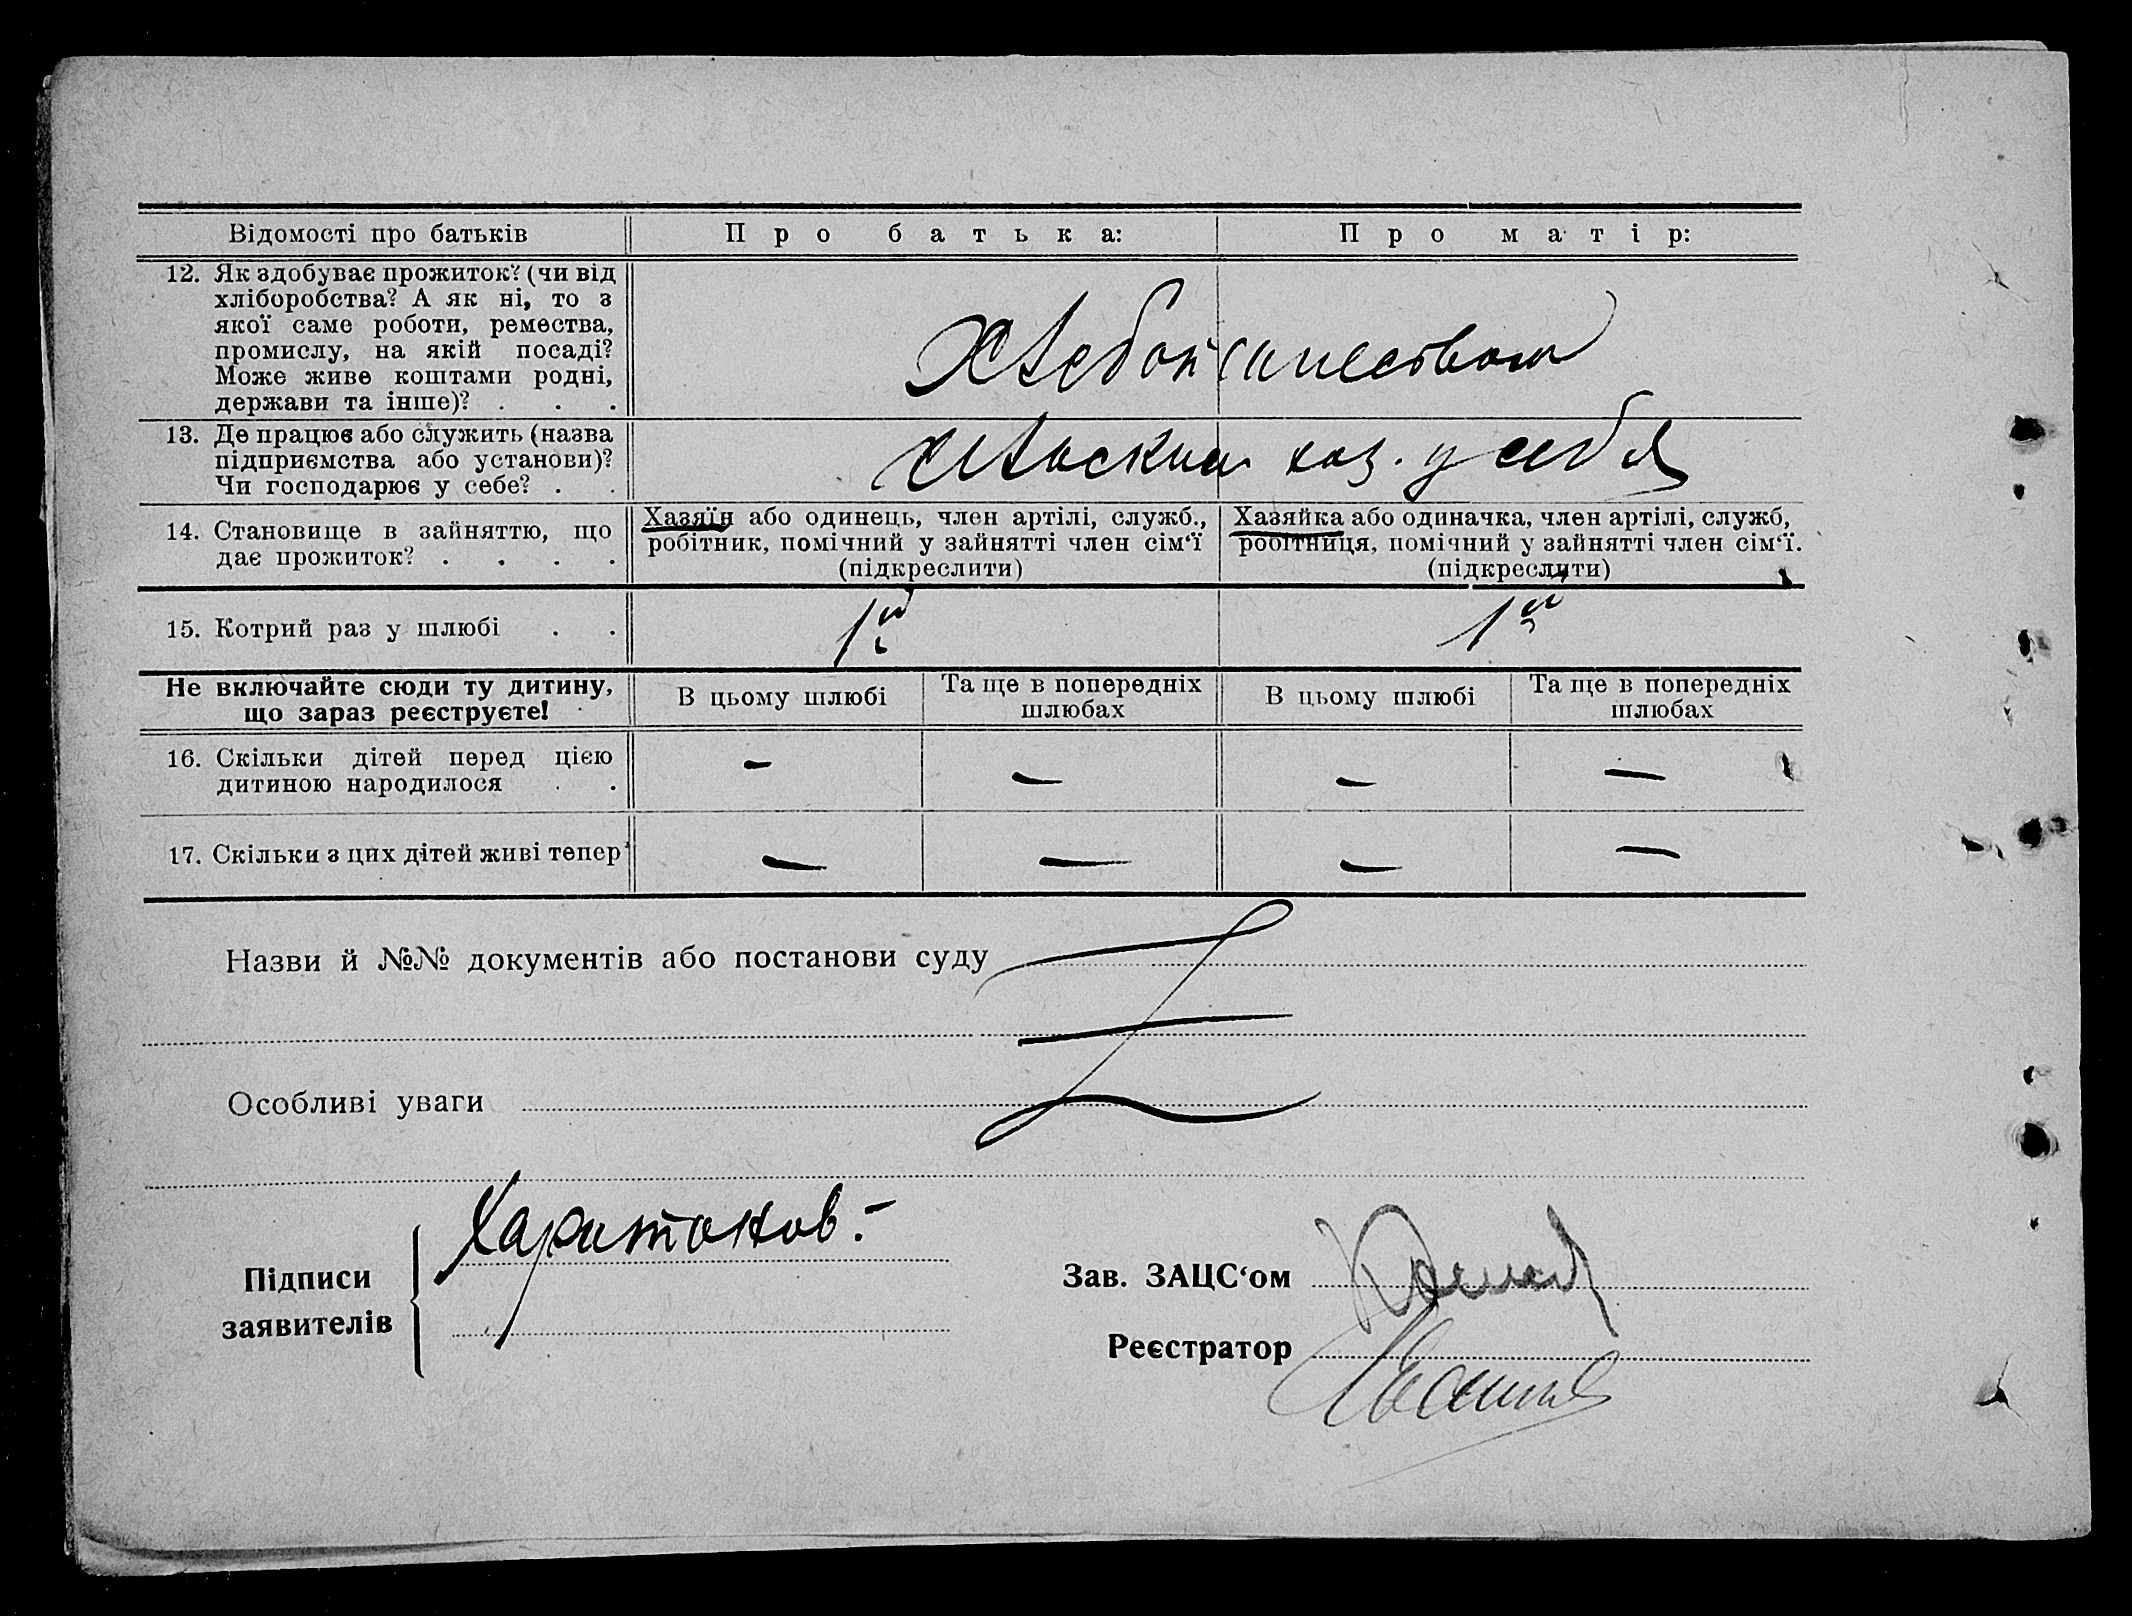 Відомості про батьків
Про батька:
Про матір:
12. Як здобуває прожиток? (чи від
хліборобства? А як ні, то з
якої саме роботи, ремества,
промислу, на якій посаді?
Може живе коштами родні,
держави та інше)? . . .
13. Де працює або служить (назва
підприємства або установи)?
Чи господарює у себе? . .
у себя
14. Становище в зайняттю, що
дає прожиток? . . . .
Хазяїн або одинець, член артілі, служб.,
робітник, помічний у зайнятті член сім'ї
(підкреслити)
Хазяйка або одиначка, член артілі, служб,
робітниця, помічний у зайнятті член сім'ї.
(підкреслити)
15. Котрий раз у шлюбі . .
1й
1й
Не включайте сюди ту дитину,
що зараз реєструєте!
В цьому шлюбі
Та ще в попередніх
шлюбах
В цьому шлюбі
Та ще в попередніх
шлюбах
16. Скільки дітей перед цією
дитиною народилося . .
— — — —
17. Скільки з цих дітей живі тепер
— — — —
Назви й №№ документів або постанови суду
Особливі уваги
Підписи
заявителів
Харитонов
Зав. ЗАЦС'ом
Реєстратор